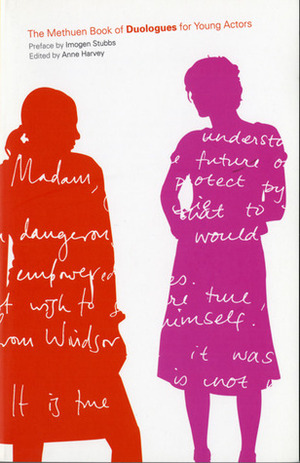 The Methuen Book of Duologues for Young Actors
Preface by Imogen Stubbs
Edited by Anne Harvey
Madam,
dangerou
empowered
t wish to s
rom Windsor
It is true
understa
e future o
protect py
that to i
would
es.
re true,
himself.
it was
is not